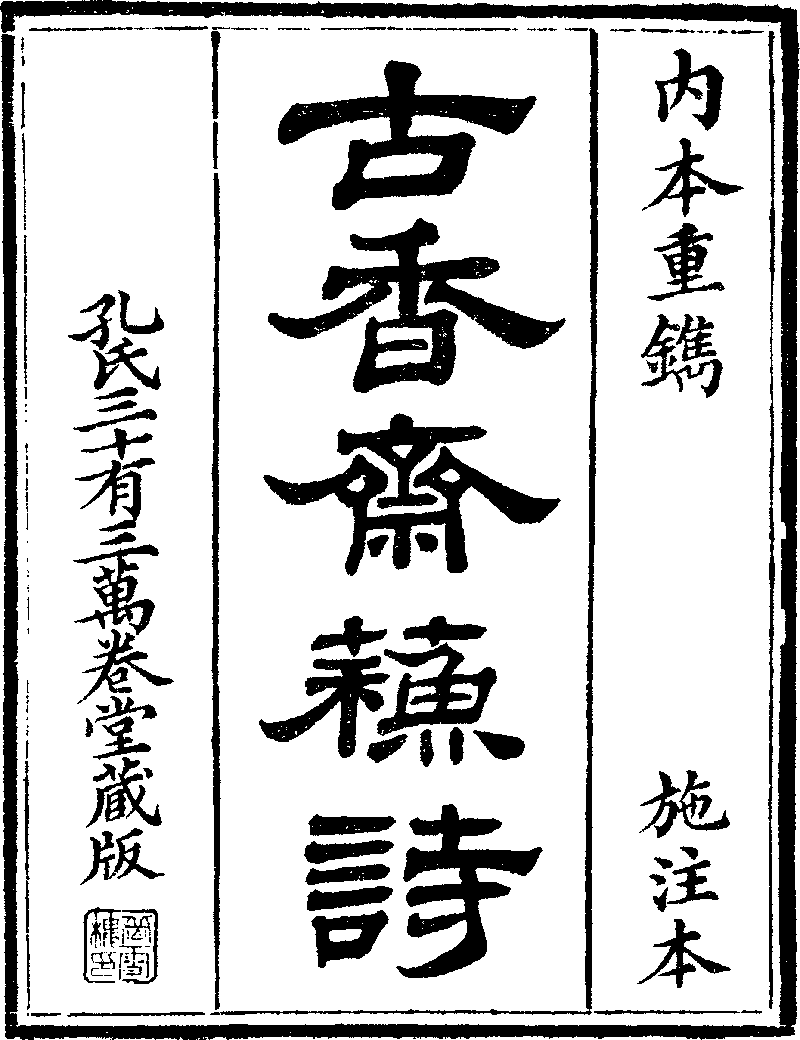 内本重鐫 施注本
古香齋蘓詩
孔氏三十有三萬卷堂藏版